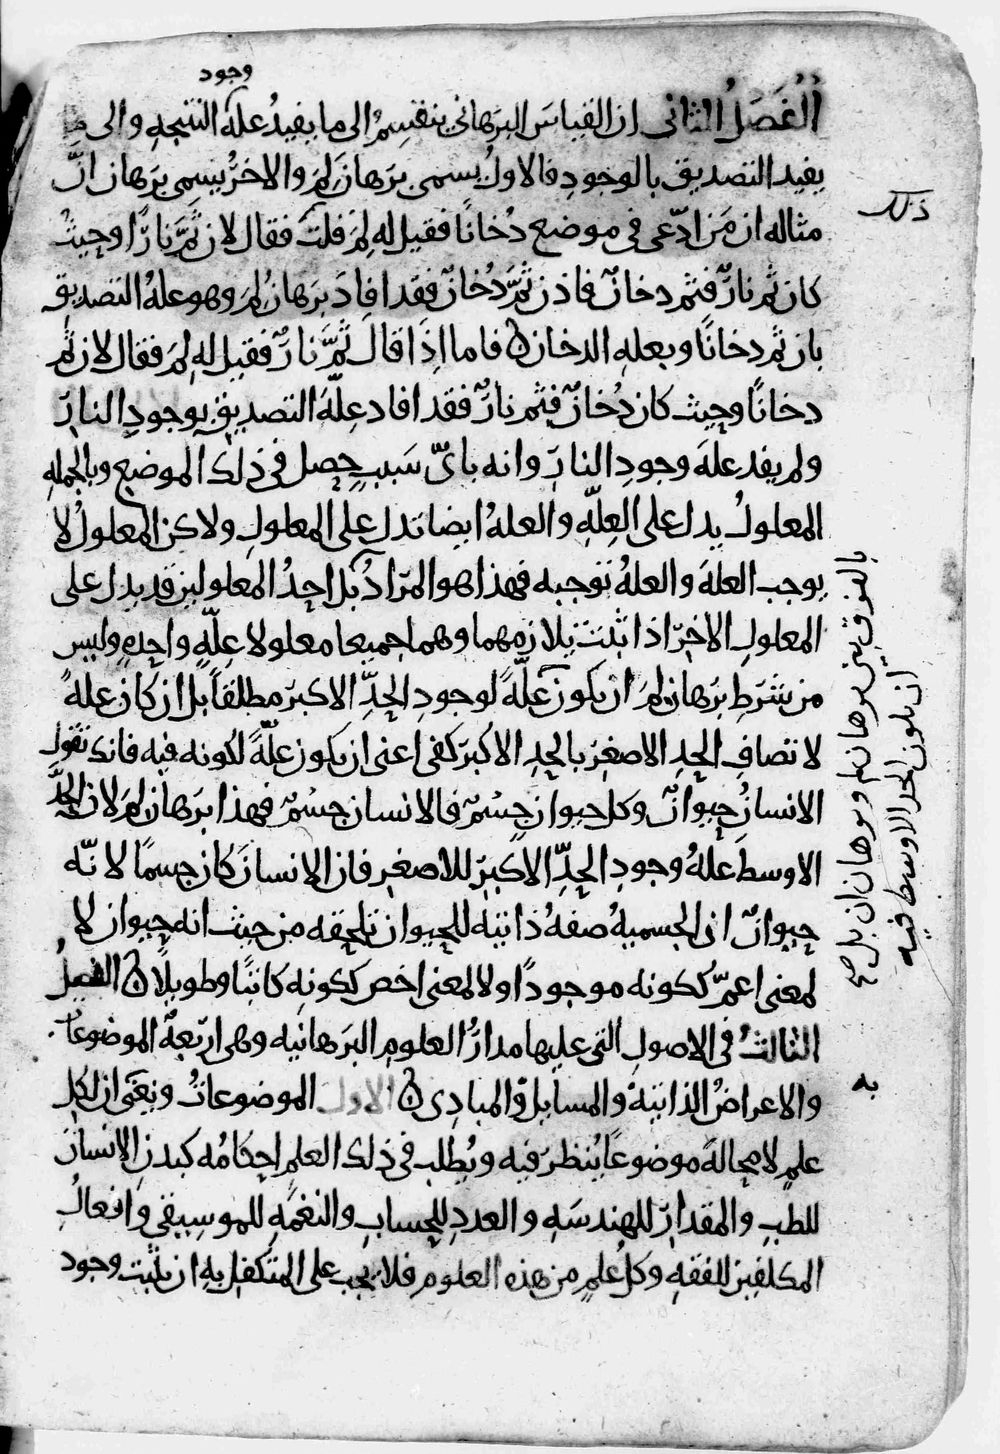 وجود
الفصل الثاني ان القياس البرهاني ينقسم الى ما يفيد علة النتيجه والى ما
يفيد التصديق بالوجود فالاول يسمى برهان لم والاخر يسمى برهان انّ
مثاله ان من ادّعى فى موضع دُخانًا فقيل له لم قلت فقال لان ثَمَّ نارًا وحيث
كان ثم نارٌ فثم دخانٌ فاذن ثَمَّ دُخانٌ فقد افاد برهان لم وهو علة التصديق
بان ثم دخانًا وبعله الدخان ن فاما اذا قال ثَمَّ نارٌ فقيل له لم فقال لان ثم
دخانًا وحيث كان دُخانٌ فثم نارٌ فقد افاد علّة التصديق بوجود النار
ولم يفد علة وجود النار وانه باىّ سبب حصل فى ذلك الموضع وبالجمله
المعلولُ يدل على العلّه والعله ايضا تدل على المعلول ولاكن المعلول لا
يوجب العلة والعلة توجبه فهذا هو المراد بل احد المعلولين قد يدل على
المعلول الاخر اذا ثبت تلازمهما وهما جميعا معلولا علّةٍ واحدهٍ وليس
من شرط برهان لم ان يكون علّةً لوجود الحدّ الاكبر مطلقاً بل ان كان علةً
لاتصاف الحد الاصغر بالحد الاكبر كفى اعنى ان يكون علّةً لكونه فيه فانك تقول
الانسان حيوانٌ وكل حيوان جسْمٌ فالانسان جسْمٌ فهذا برهان لم لان الحدَّ
الاوسط علة وجود الحدّ الاكبر للاصغر فان الانسان كان جسمًا لانّه
حيوانٌ اى الجسميه صفه ذاتية للحيوان تلحقه من حيث انه حيوان لا
لمعنى اعمّ ككونه موجودًا ولا لمعنى اخص ككونه كاتبًا وطويلًا ن الفصل
الثالث فى الاصول التى عليها مدار العلوم البرهانيه وهى اربعة الموضوعات
والاعراض الذاتية والمسايل والمبادى ن الاول الموضوعات ونعنى ان لكل
علمٍ لا محالة موضوعًا يُنظر فيه ويُطلب فى ذلك العلم احكامُه كبدن الانسان
للطب والمقدار للهندسه والعدد للحساب والنغمه للموسيقى وافعال
المكلفين للفقه وكل علم من هذه العلوم فلا يجب على المتكفل به ان يثبت وجود
ذلك
بالفرق بين برهان لم وبرهان ان بل صح
ان يكون الحد الاوسط فيه
به